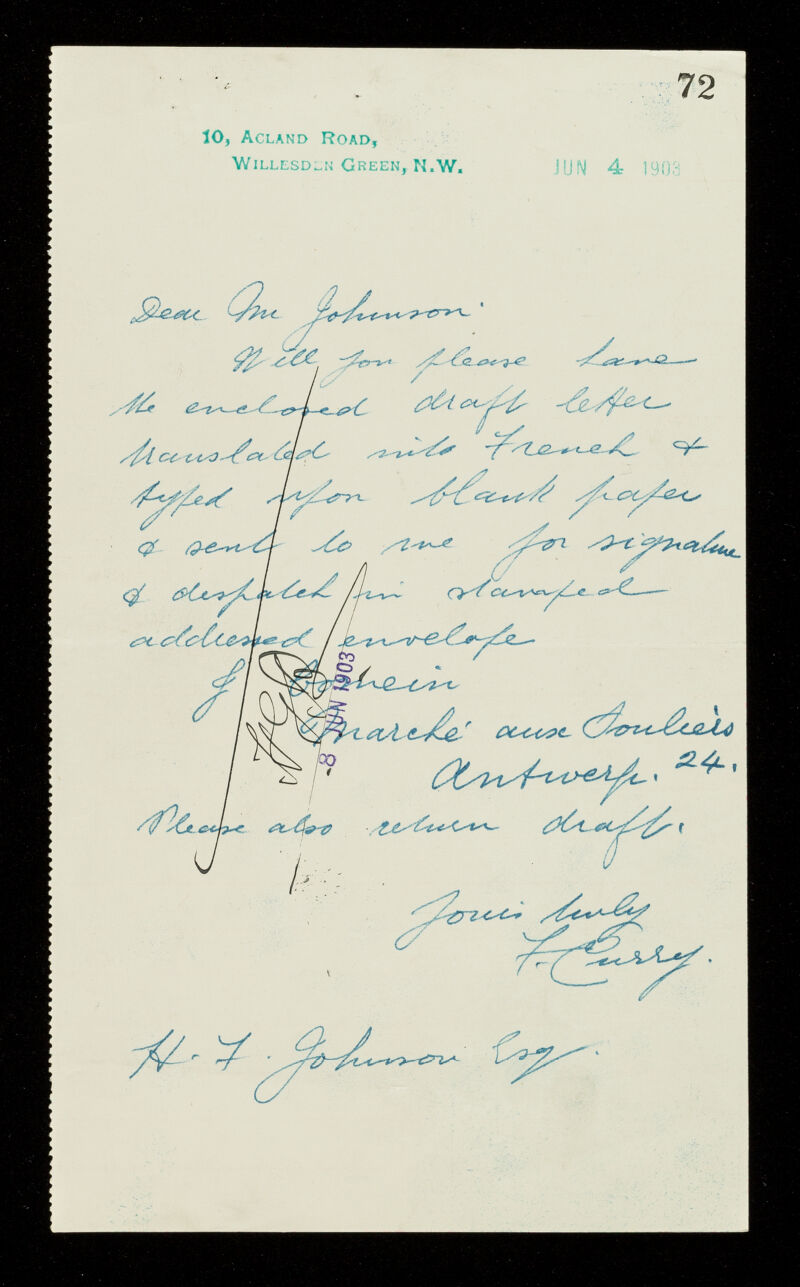 72
10, ACLAND ROAD,
WILLESDEN GREEN, N.W.
JUN 4 1903
Dear Mr Johnson
Will you please have
the enclosed draft letter
translated into French &
typed upon blank paper
& sent to me for signature
& despatch in stamped
addressed envelope
J
Marché aux Souliers
Antwerp. 24.
Please also return draft.
Yours truly
F. Curry.
H. F. Johnson Esq.
8 JUN 1903